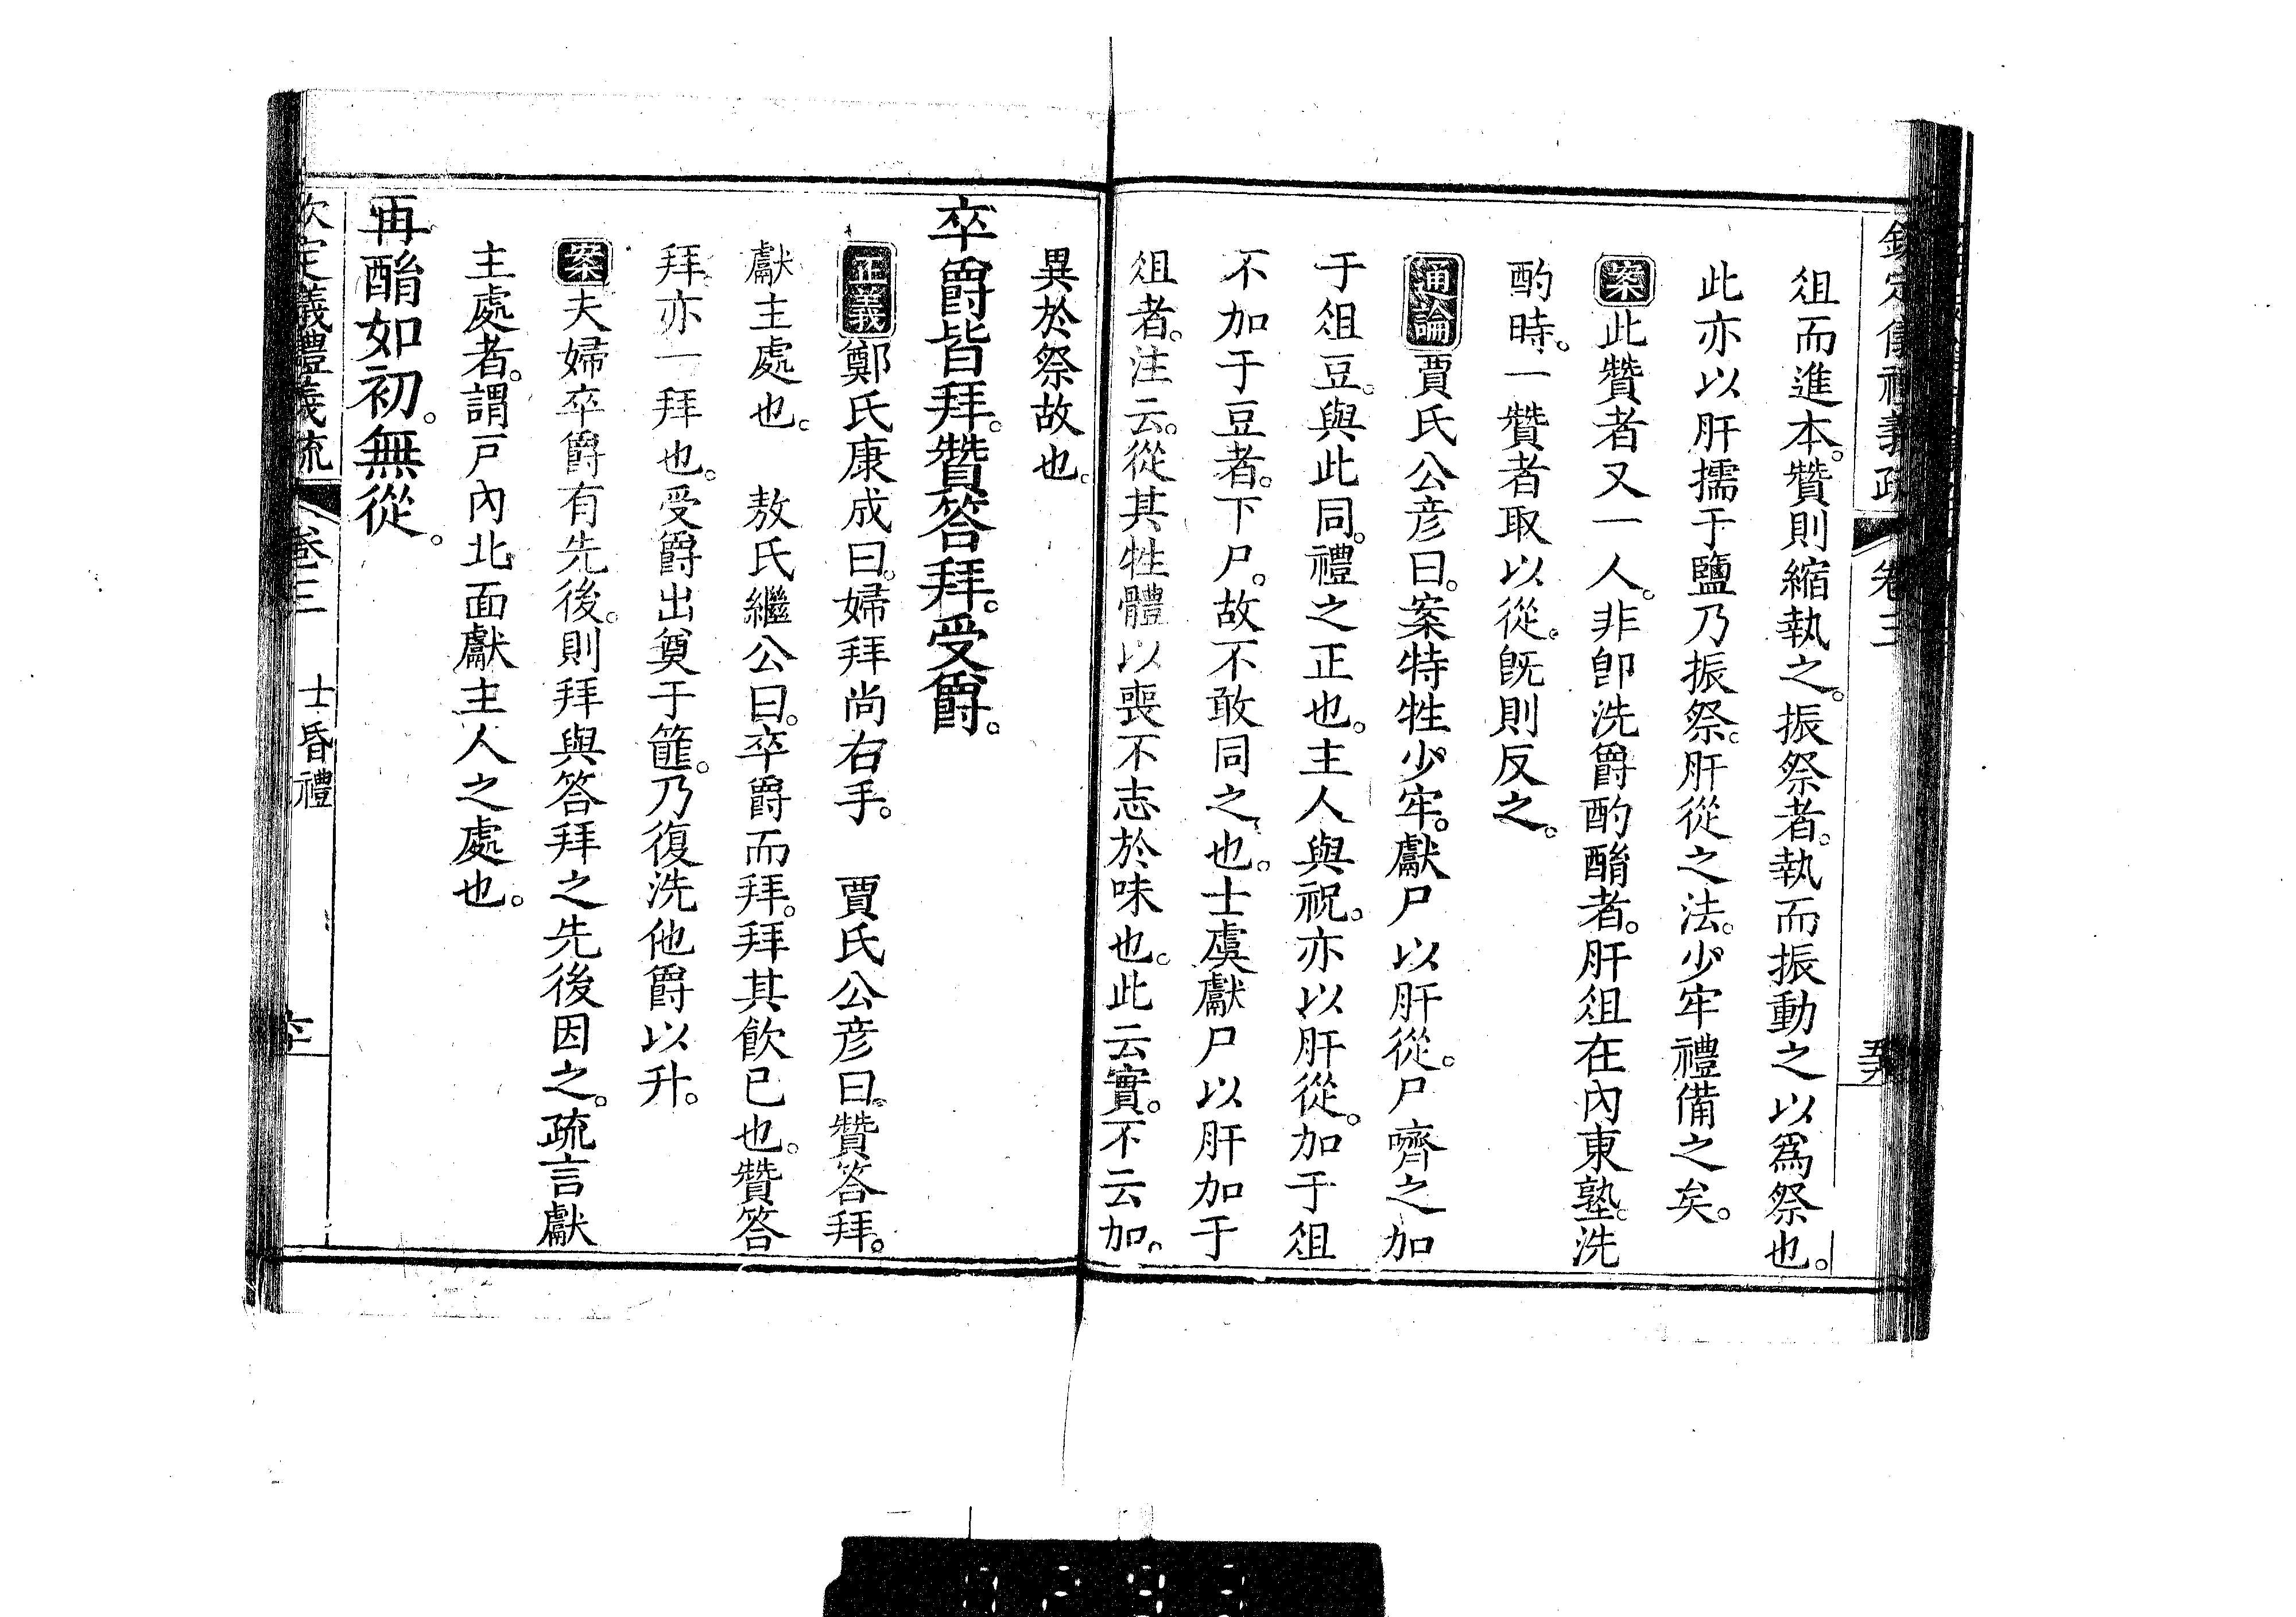 欽定儀禮義疏 卷三
俎而進本。贊則縮執之。振祭者。執而振動之以爲祭也。
此亦以肝擩于鹽乃振祭。肝從之法。少牢禮備之矣。
案此贊者又一人。非卽洗爵酌酳者。肝俎在內東塾。洗
酌時。一贊者取以從。旣則反之。
通論賈氏公彦曰。案特牲少牢。獻尸以肝從。尸嚌之加
于俎豆。與此同。禮之正也。主人與祝。亦以肝從。加于俎
不加于豆者。下尸。故不敢同之也。士虞獻尸以肝加于
俎者。注云。從其牲體以喪不志於味也。此云實。不云加。
異於祭故也。
卒爵皆拜。贊荅拜。受爵。
正義鄭氏康成曰。婦拜尚右手。　賈氏公彦曰。贊荅拜。
獻主處也。　敖氏繼公曰。卒爵而拜。拜其飲已也。贊答
拜亦一拜也。受爵出奠于篚。乃復洗他爵以升。
案夫婦卒爵有先後。則拜與答拜之先後因之。疏言獻
主處者。謂戸內北面獻主人之處也。
再酳如初。無從。
欽定儀禮義疏 卷三 士昏禮